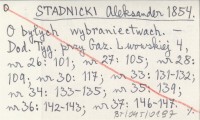 STADNICKI Aleksander 1854.
O byłych wybraniectwach. –
Dod. Tyg. przy Gaz. Lwowskiej 4,
nr 26: 101; nr 27: 105; nr 28:
109; nr 30: 117; nr 33: 131-132;
nr 34: 133-135; nr 35: 139;
nr 36: 142-143; nr 37: 146-147.